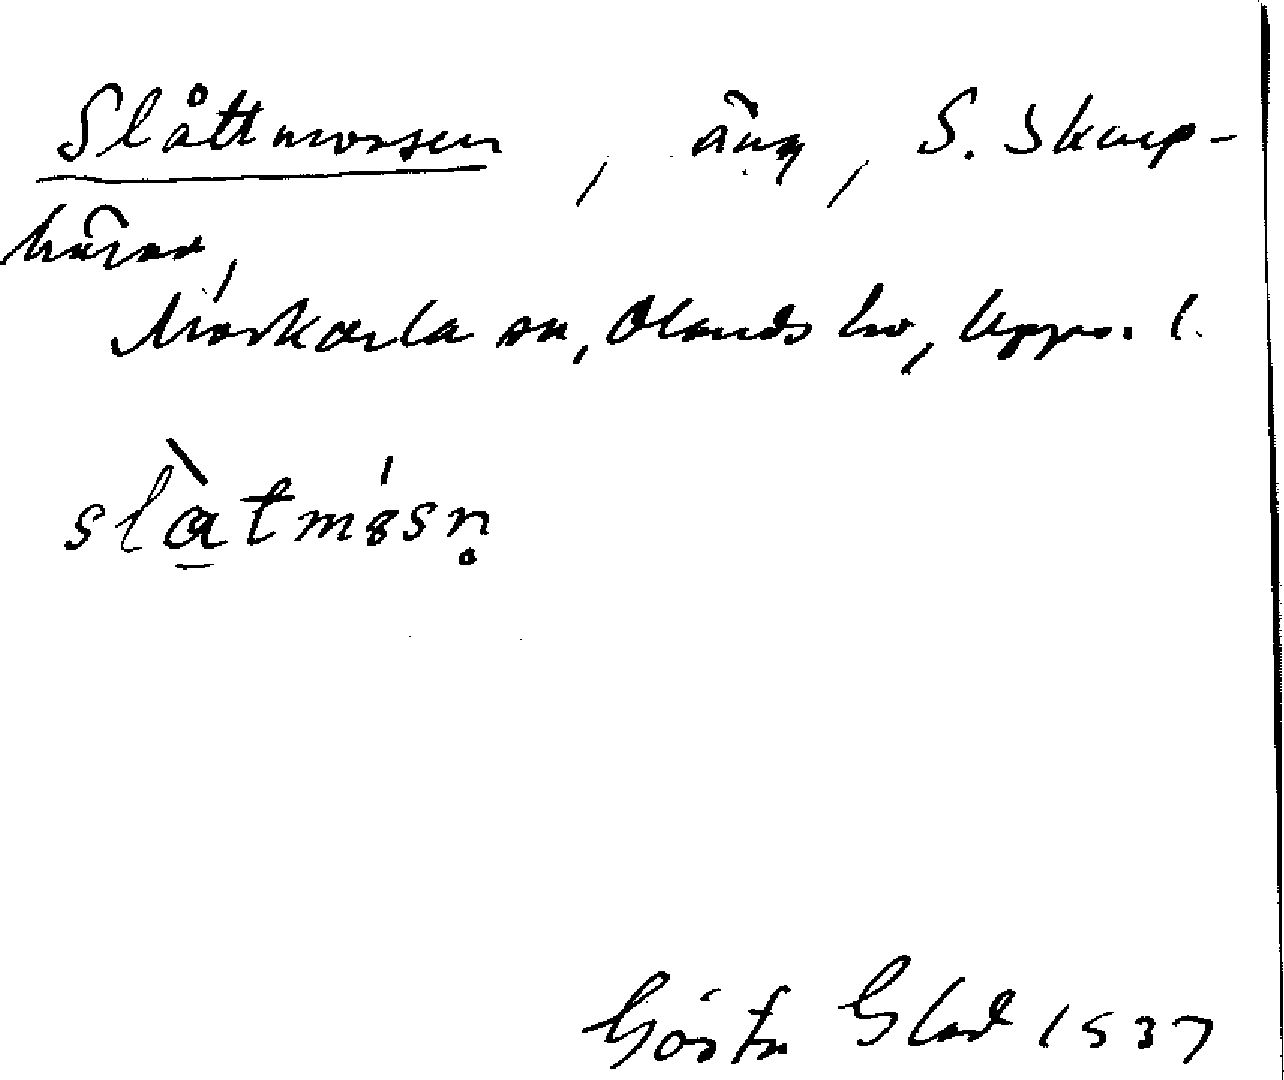 Slåttmossen, äng, S. Skarp-
Morkarla sn, Olands hd, Upps. l.
slàtmósn̥
Gösta Blad 1937